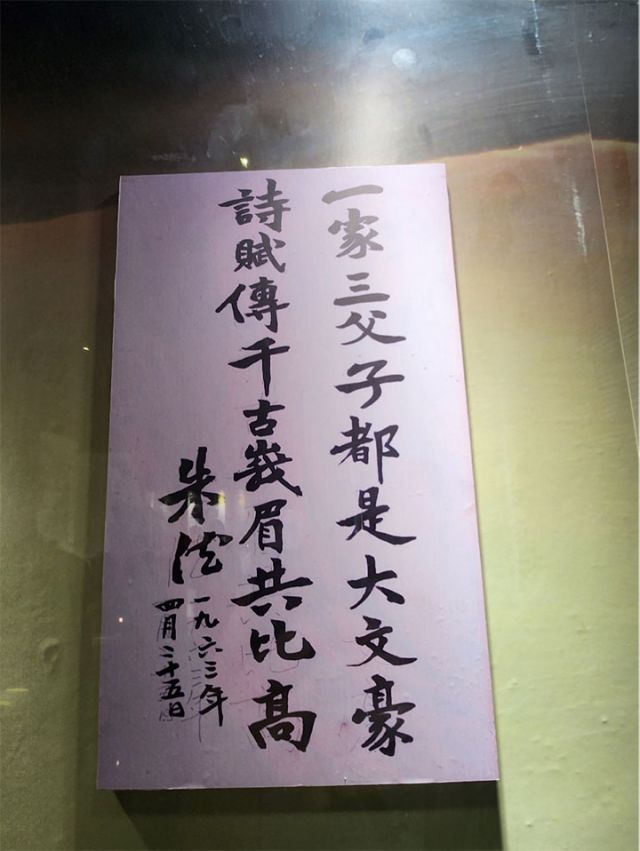 一家三父子都是大文豪
詩賦傳千古峩眉共比高
朱德
一九六三年
四月二十五日